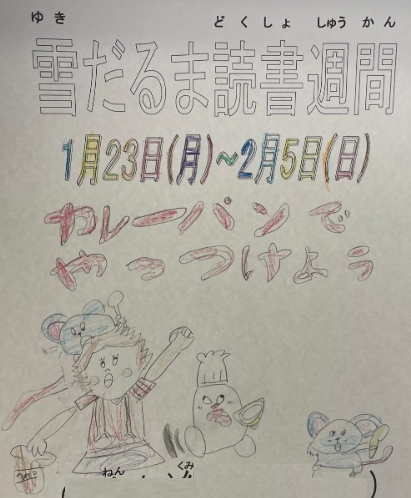 ゆき どくしょ しゅうかん
雪だるま読書週間
1月23日(月)~2月5日(日)
カレーパンで
やっつけよう
ねん くみ